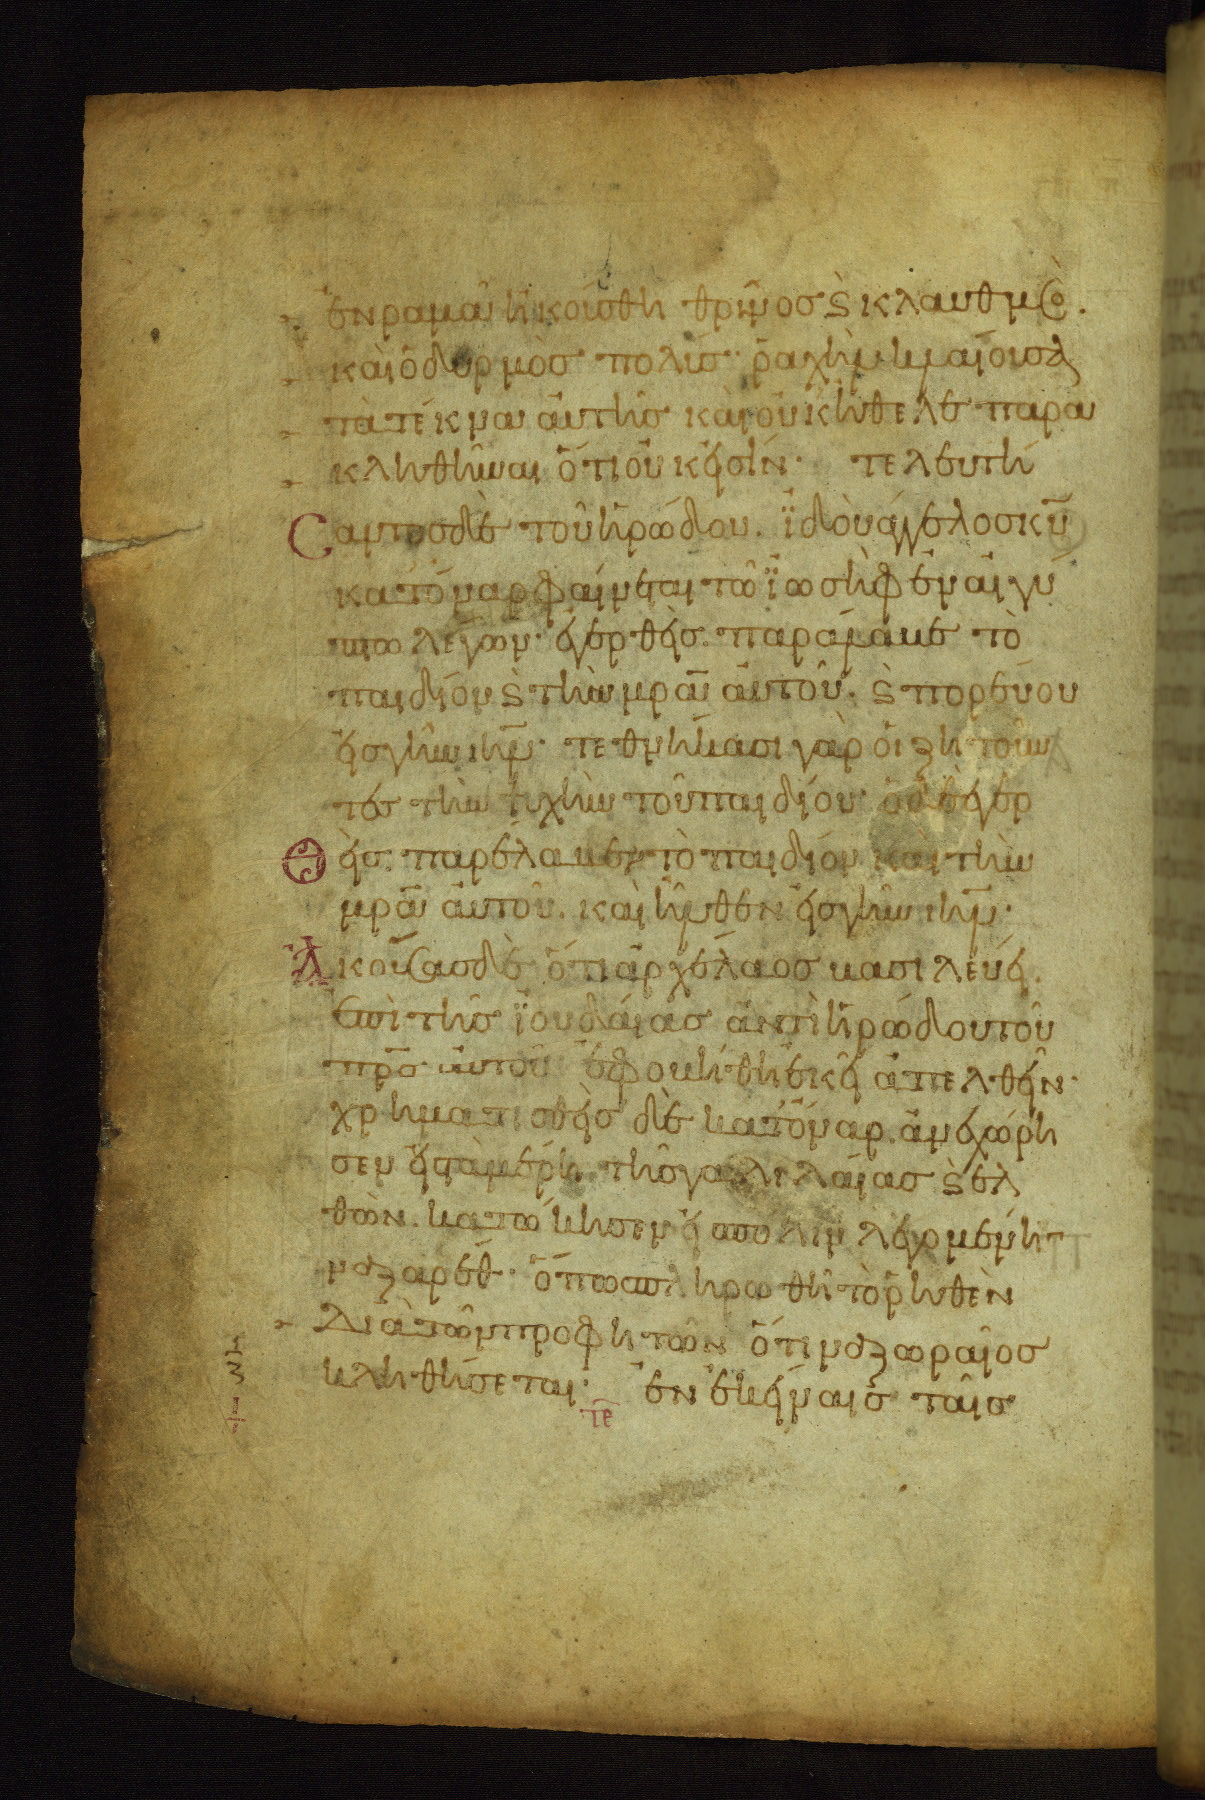 ἐν ραμᾶ ἠκούσθη θρῆνος ϗ κλαυθμὸς.
καὶ ὀδυρμὸς πολύς· ραχὴλ κλαίουσα
τὰ τέκνα αὐτῆς καὶ οὐκ ἤθελε παρα
κληθῆναι ὅτι οὐκ εἰσίν· τελευτή
Σαντος δὲ τοῦ ἡρώδου. ἰδοὺ ἄγγελος κυ
κατόναρ φαίνεται τῶ ϊωσὴφ ἐν αἰγύ
πτω λέγων· ἐγερθεὶς παράλαβε τὸ
παιδίον ϗ τὴν μρα αὐτοῦ. ϗ πορεύου
εἰς γῆν ιηλ· τεθνήκασι γὰρ οἱ ζητοῦν
τες τὴν ψυχὴν τοῦ παιδίου· ὁ δὲ ἐγερ
Θεὶς παρέλαβεν τὸ παιδίον καὶ τὴν
μρα αὐτοῦ. καὶ ἦλθεν εἰς γῆν ιηλ·
Ἀκούσας δὲ ὅτι ἀρχέλαος βασιλεύει
ἐπὶ τῆς ϊουδαίας ἀντὶ ἡρώδου τοῦ
πρς αὐτοῦ ἐφοβήθη ἐκεῖ ἀπελθεῖν·
χρηματισθεὶς δὲ κατόναρ. ἀνεχώρη
σεν εἰς τὰ μέρη τῆς γαλιλαίας ϗ ἐλ
θὼν. κατώκησεν εἰς πόλιν λεγομένην
ναζαρέθ· ὅπως πληρωθῆ τὸ ρηθὲν
διὰ τῶν προφητῶν ὅτι ναζωραῖος
κληθήσεται· ἐν ἐκείναις ταῖς